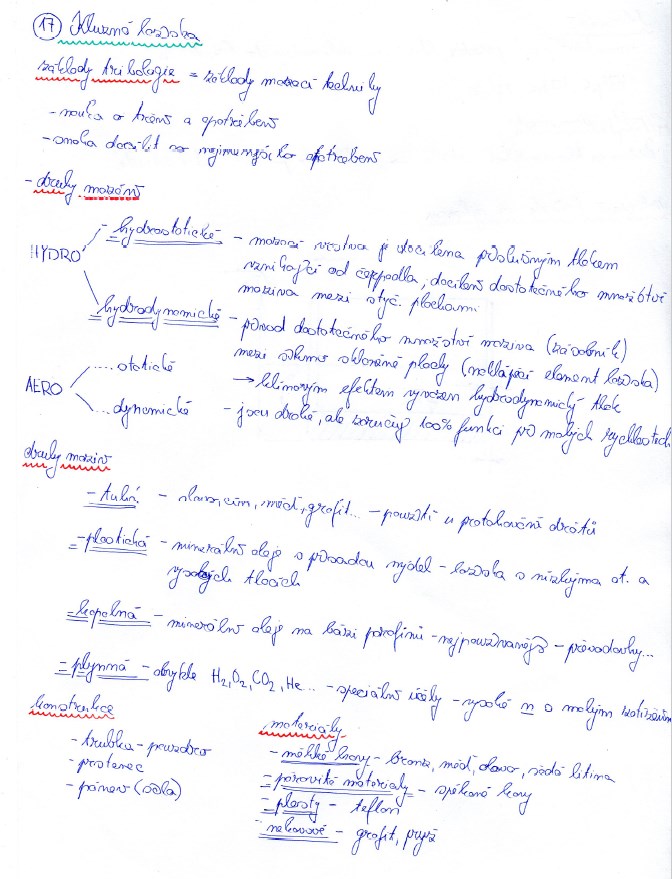 17 Kluzná ložiska
základy tribologie = základy mazací techniky
- nauka o tření a opotřebení
- snaha docílit co nejmenšího opotřebení
- druhy mazání
HYDRO
- hydrostatické - mazací vrstva je utvořena příslušným tlakem
vznikající od čerpadla, docílení dostatečného množství
maziva mezi styč. plochami
hydrodynamické - přívod dostatečného množství maziva (zásobník)
mezi šikmo skloněné plochy (naklápěcí element ložiska)
→ klínovým efektem vyvozen hydrodynamický tlak
AERO
.... statické
... dynamické - jsou drahé, ale zaručují 100% funkci při malých rychlostech
druhy maziv
- tuhá - olovo, cín, měď, grafit... - použití u protahování drátů
- plastická - minerální oleje s přísadou mýdel - ložiska s nízkýma ot. a
vysokých tlacích
- kapalná - minerální oleje na bázi parafinů - nejpoužívanější - převodovky...
- plynná - obvykle H2, O2, CO2, He... - speciální účely - vysoké n s malým zatížením
konstrukce
- trubka - pouzdro
- prstenec
- pánev (sedla)
materiály
- měkké kovy - bronz, měď, olovo, šedá litina
- pórovité materiály - spékané kovy
- plasty - teflon
nekovové - grafit, pryž